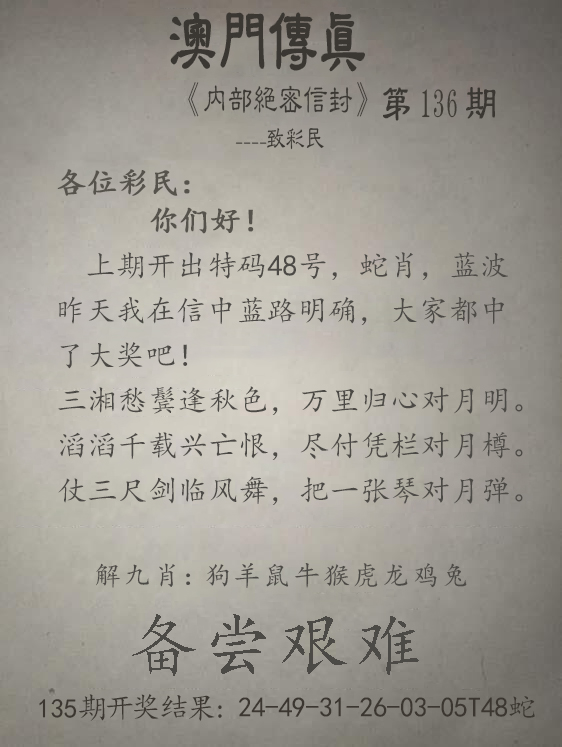 澳門傳眞
《内部絕密信封》第136期
----致彩民
各位彩民：
你们好！
上期开出特码48号，蛇肖，蓝波
昨天我在信中蓝路明确，大家都中
了大奖吧！
三湘愁鬓逢秋色，万里归心对月明。
滔滔千载兴亡恨，尽付凭栏对月樽。
仗三尺剑临风舞，把一张琴对月弹。
解九肖：狗羊鼠牛猴虎龙鸡兔
备尝艰难
135期开奖结果：24-49-31-26-03-05T48蛇